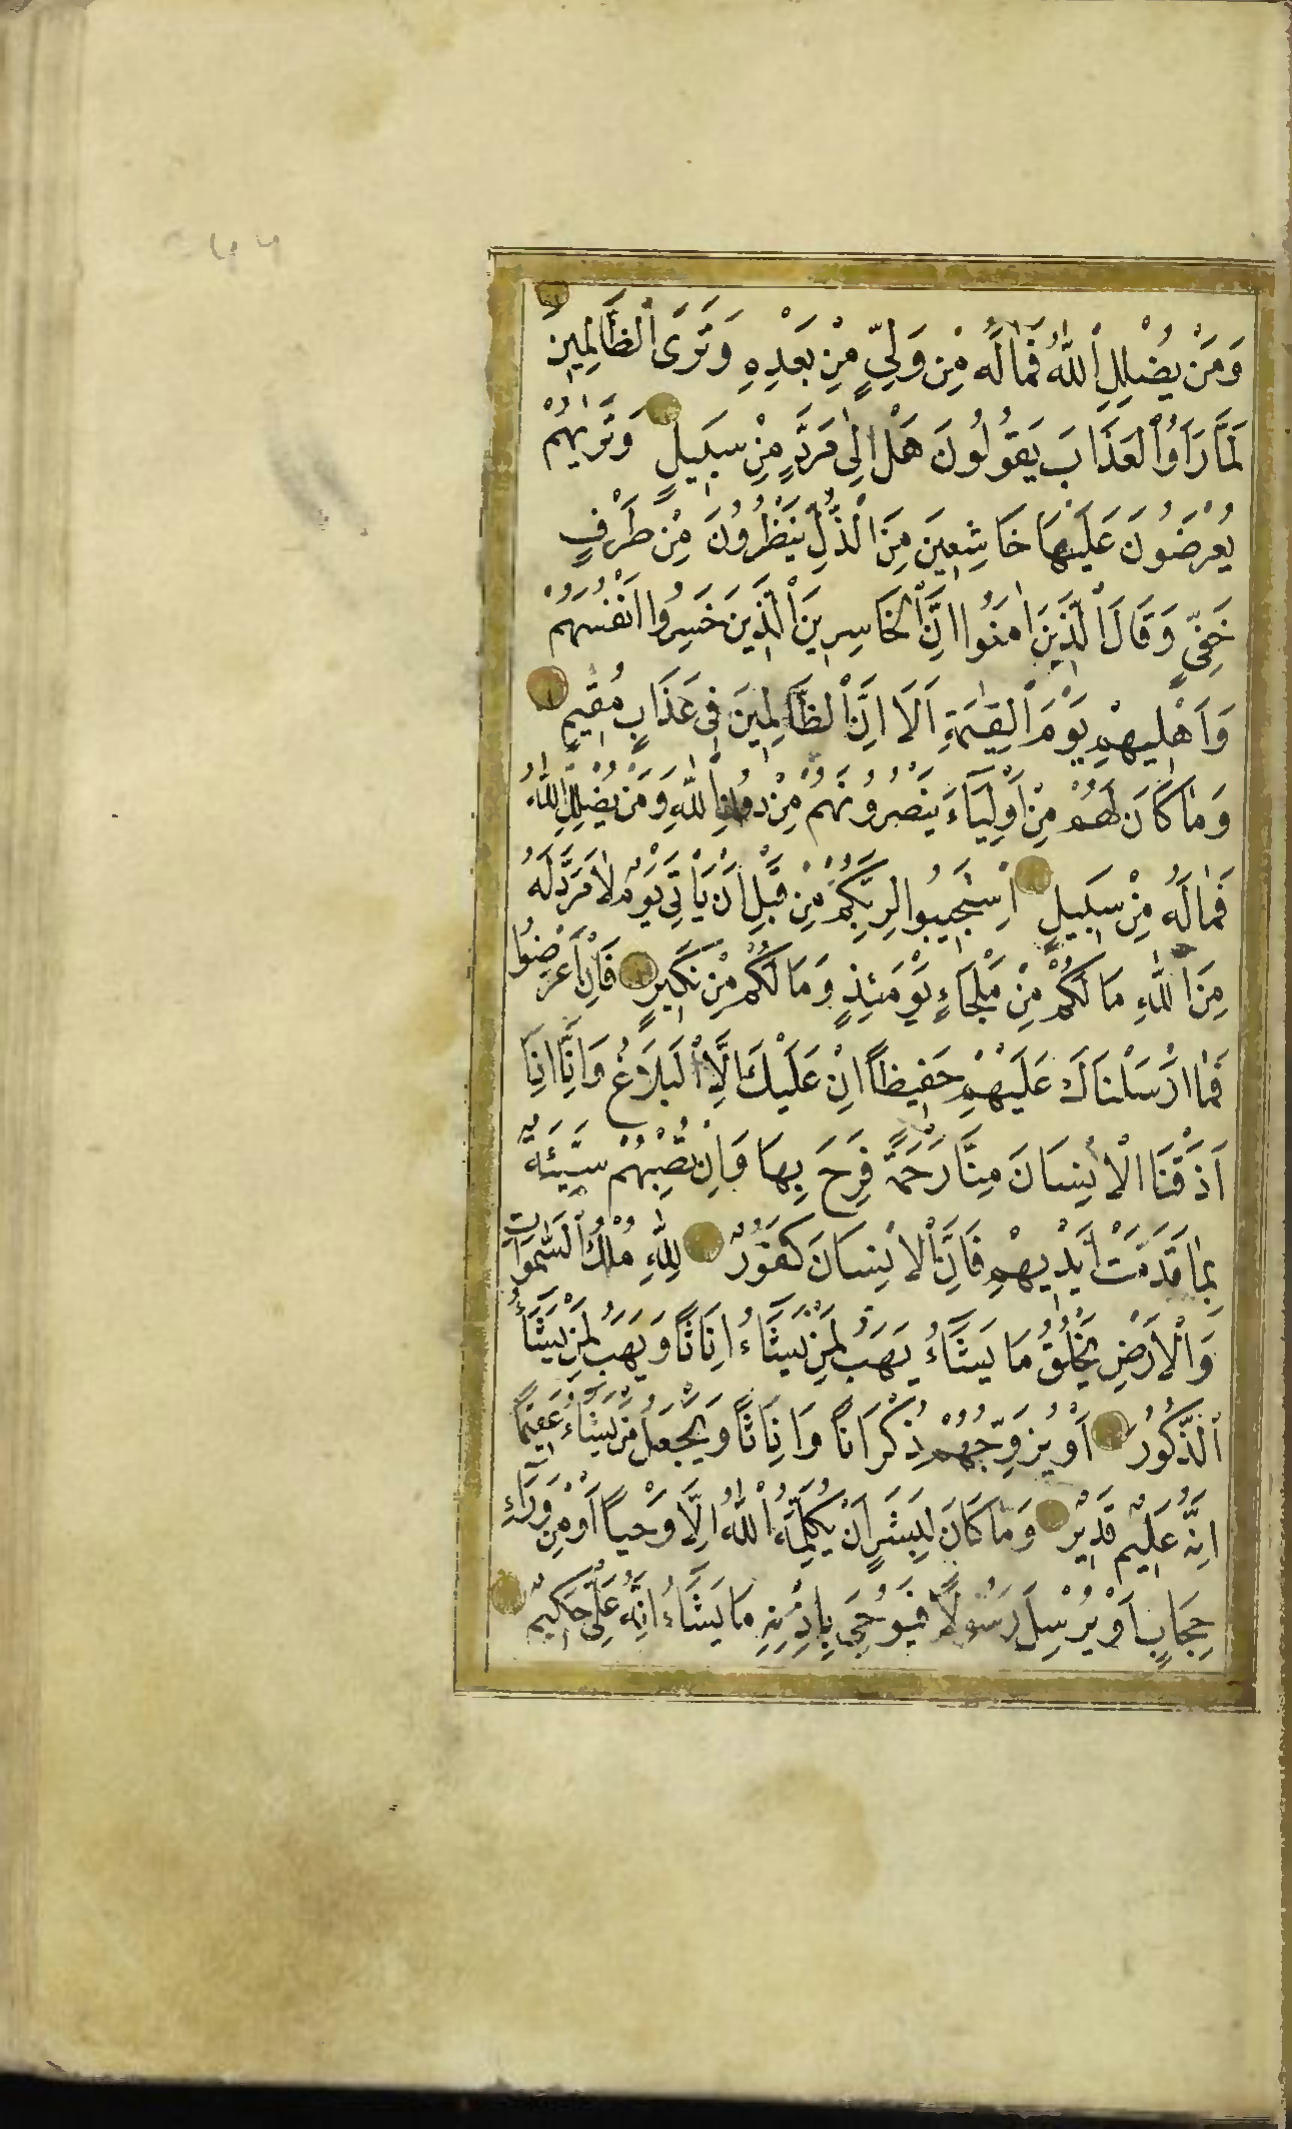 وَمَنْ يُضْلِلِ اْللّٰهُ فَمٰالَهُ مِنْ وَلِيٍّ مِنْ بَعْدِهِ وَتَرَى اْلظَّالِمِينَ
لَمَّارَاَوُاْ الْعَذَابَ يَقُولُونَ هَلْ اِلٰى مَرَدٍّ مِنْ سَبِيلٍ وَتَرٰيهُمْ
يُعْرَضُونَ عَلَيْهَا خَاشِعِينَ مِنَ الْذُّلِّ يَنْظُرُونَ مِنْ طَرْفٍ
خَفِيٍّ وَقَالَ الَّذِينَ اٰمَنُوا اِنَّ الْخَاسِرِينَ الَّذِينَ خَسِرُوا اَنْفُسَهُمْ
وَاَهْلِيهِمْ يَوْمَ الْقِيٰمَةِ اَلَا اِنَّ اْلظَّالِمِينَ فِي عَذَابٍ مُقِيمٍ
وَمٰا كَانَ لَهُمْ مِنْ اَوْلِيَآءَ يَنْصُرُونَهُمْ مِنْ دُونِ اللّٰهِ وَمَنْ يُضْلِلِ اللّٰهُ
فَمٰالَهُ مِنْ سَبِيلٍ اِسْتَجِيبُوا لِرَبِّكُمْ مِنْ قَبْلِ اَنْ يَاْتِيَ يَوْمٌ لَا مَرَدَّ لَهُ
مِنَ اللّٰهِ مَا لَكُمْ مِنْ مَلْجَاءٍ يَوْمَئِذٍ وَمَا لَكُمْ مِنْ نَكِيرٍ فَاِنْ اَعْرَضُوا
فَمٰا اَرْسَلْنَاكَ عَلَيْهِمْ حَفِيظاً اِنْ عَلَيْكَ اِلَّا الْبَلَاغُ وَاِنَّا اِذَا
اَذَقْنَا الْاِنْسَانَ مِنَّا رَحْمَةً فَرِحَ بِهَا وَاِنْ تُصِبْهُمْ سَيِّئَةٌ
بِمٰا قَدَّمَتْ اَيْدِيهِمْ فَاِنَّ الْاِنْسَانَ كَفُورٌ لِلّٰهِ مُلْكُ السَّمٰوَاتِ
وَالْاَرْضِ يَخْلُقُ مَا يَشَاءُ يَهَبُ لِمَنْ يَشَاءُ اِنَاثًا وَيَهَبُ لِمَنْ يَشَاءُ
الذُّكُورُ اَوْ يُزَوِّجُهُمْ ذُكْرَانًا وَاِنَاثًا وَيَجْعَلُ مَنْ يَشَاءُ عَقِيمًا
اِنَّهُ عَلِيمٌ قَدِيرٌ وَمٰا كَانَ لِبَشَرٍ اَنْ يُكَلِّمَهُ اللّٰهُ اِلَّا وَحْياً اَوْ مِنْ وَرَاءِ
حِجَابٍ اَوْ يُرْسِلَ رَسُولاً فَيُوحِيَ بِاِذْنِهِ مَا يَشَاءُ اِنَّهُ عَلِيٌّ حَكِيمٌ